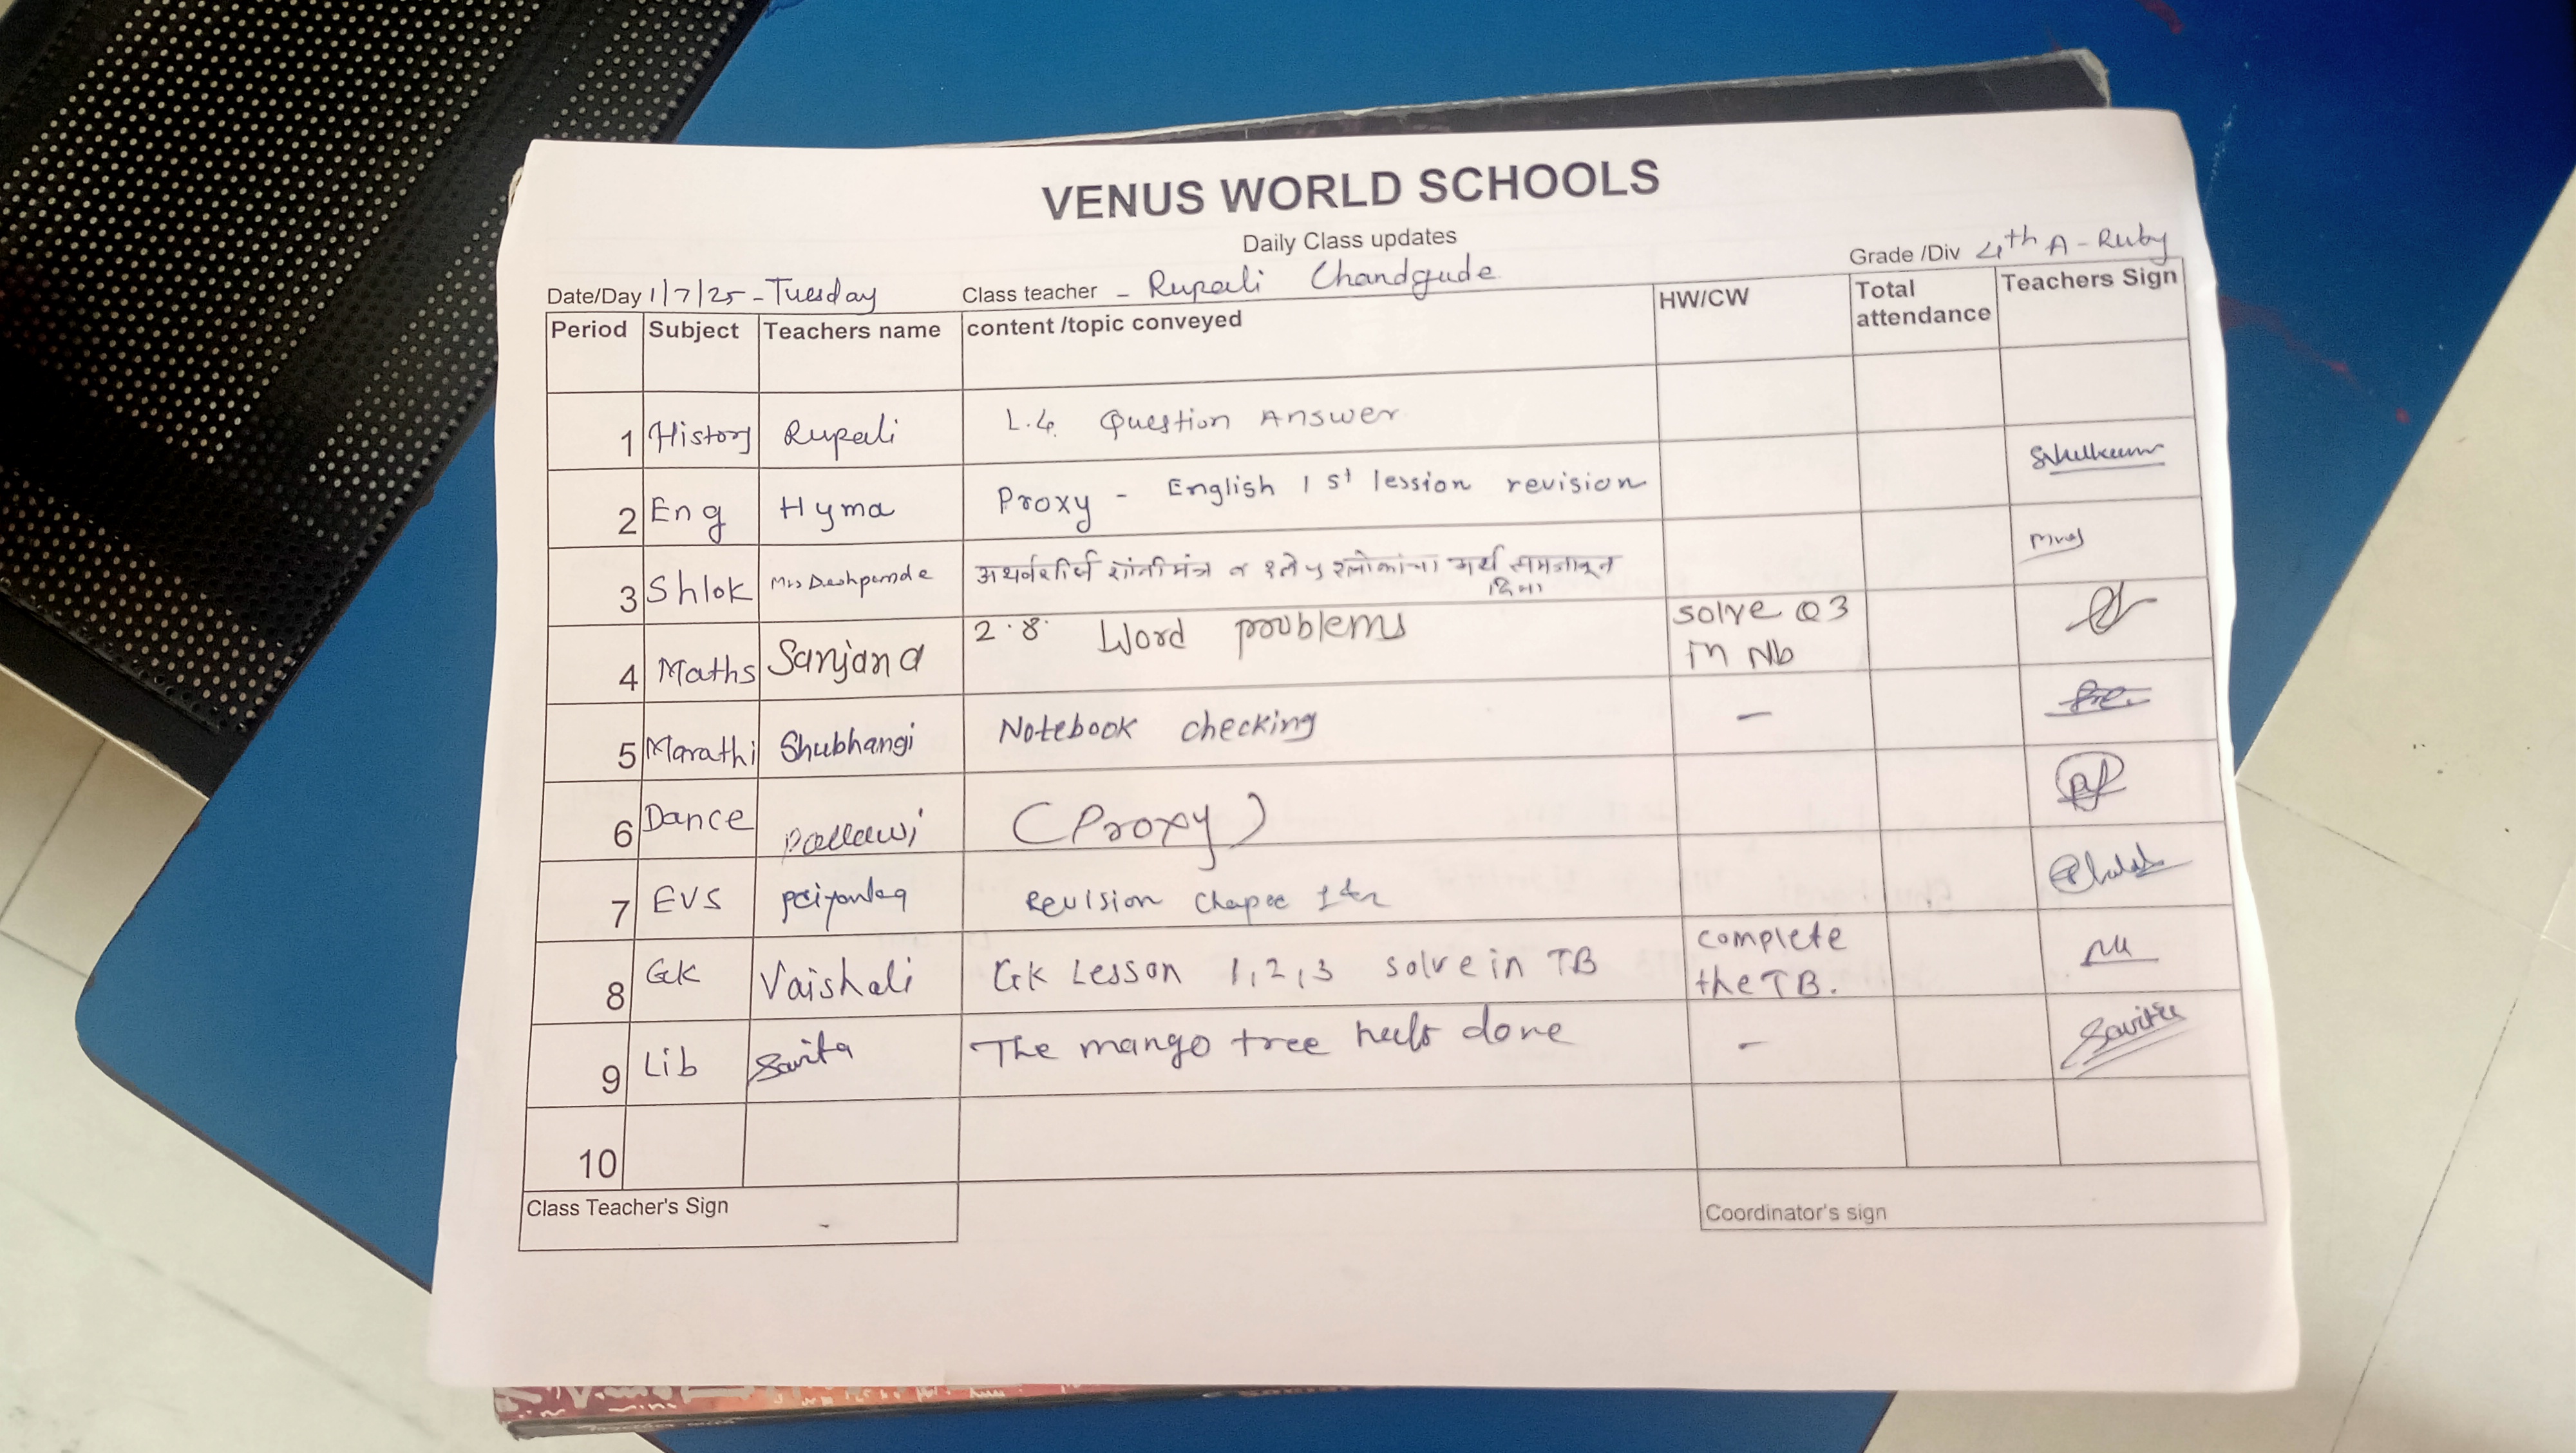 VENUS WORLD SCHOOLS
Daily Class updates
Date/Day 1/7/25 - Tuesday Class teacher - Rupali Chandgude Grade /Div 4th A - Ruby
Period Subject Teachers name content /topic conveyed HW/CW Total attendance Teachers Sign
1 History Rupali L.4. Question Answer
2 Eng Hyma Proxy - English 1st lession revision
3 Shlok Mrs Deshpande अथर्वशीर्ष शांतीमंत्र व १ ते ५ श्लोकांचा अर्थ समजावून
दिला
4 Maths Sanjana 2.8. Word problems solve Q3
in Nb
5 Marathi Shubhangi Notebook checking -
6 Dance Pallawi (Proxy)
7 EVS Priyanka Revision 1 & 2
8 GK Vaishali GK Lesson 1,2,3 solve in TB complete
the TB.
9 Lib Savita The mango tree done - Savita
10
Class Teacher's Sign Coordinator's sign